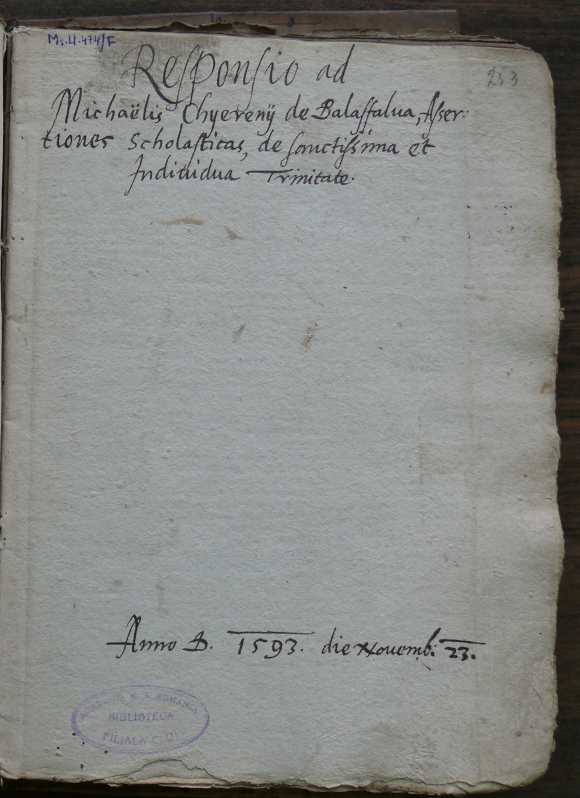 Ms.U.474/F
253
Responsio ad
Michaëlis Chyerenÿ de Balasfalua, Asser:
tiones Scholasticas, de sanctissima et
Indiuidua Trinitate.
Anno D. 1593. die Nouemb: 23.
BIBLIOTECA
FILIALA CLUJ